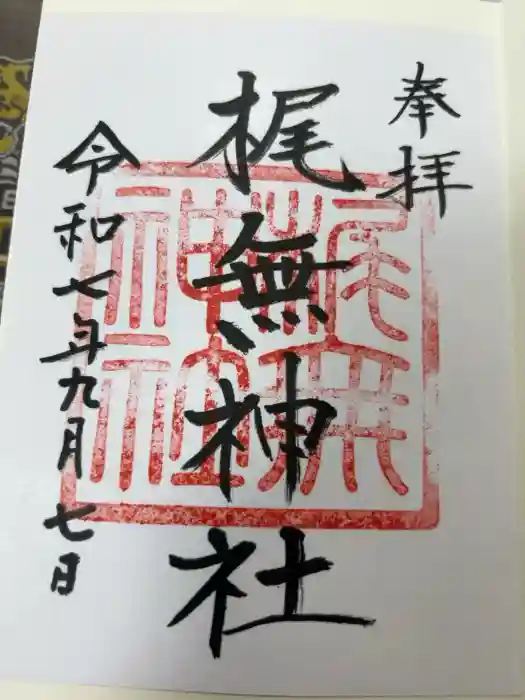 奉拝
梶無神社
令和七年九月七日
梶無
神社